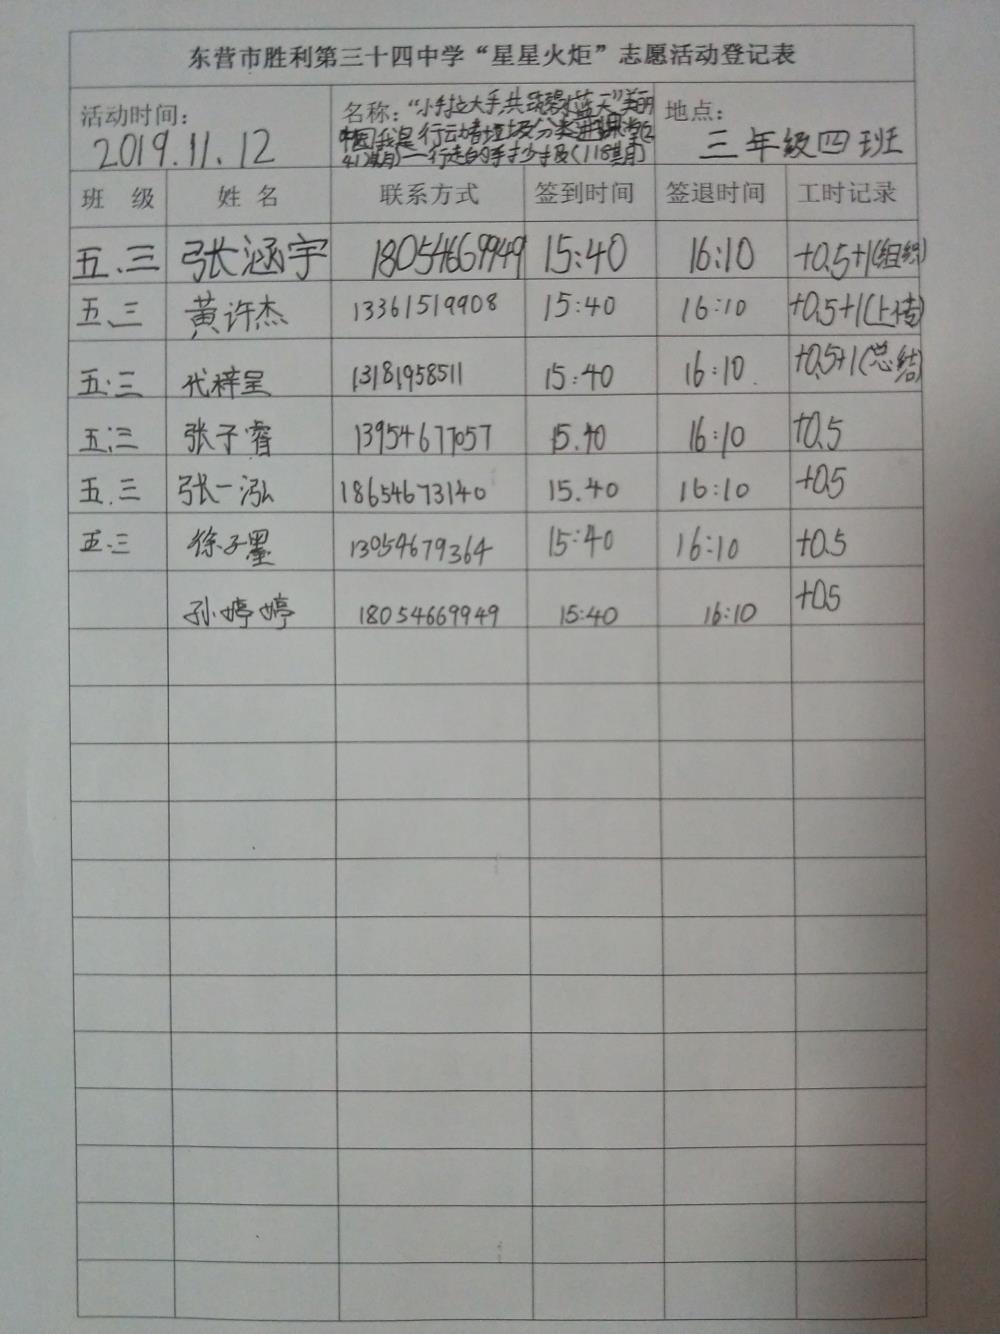 东营市胜利第三十四中学“星星火炬”志愿活动登记表
活动时间： 名称：“小手拉大手,共筑碧水蓝天”美丽 地点：
2019.11.12 中国我是行动者垃圾分类进课堂(2 三年级四班
41期)—行走的手抄报(118期)
班 级 姓 名 联系方式 签到时间 签退时间 工时记录
五.三 张涵宇 18054669949 15:40 16:10 +0.5+1(组织)
五.三 黄许杰 13361519908 15:40 16:10 +0.5+1(上传)
五.三 代梓呈 13181958511 15:40 16:10 +0.5+1(总结)
五.三 张子睿 13954677057 15.40 16:10 +0.5
五.三 张一泓 18654673140 15.40 16:10 +0.5
五.三 徐子墨 13054679364 15:40 16:10 +0.5
孙婷婷 18054669949 15:40 16:10 +0.5